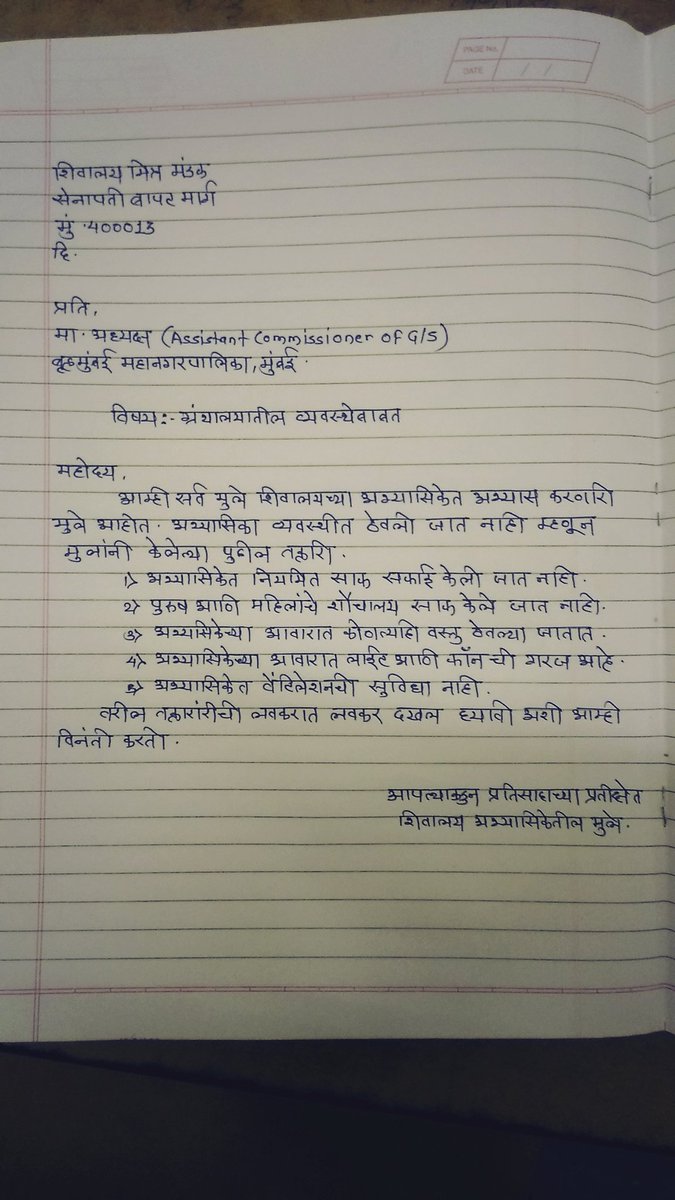 PAGE No.
DATE / /
शिवालय मित्र मंडळ
सेनापती बापट मार्ग
मुं ४०००१३
दि.
प्रति,
मा. अध्यक्ष (Assistant Commissioner of G/S)
बृहन्मुंबई महानगरपालिका, मुंबई.
विषय:- ग्रंथालयातील व्यवस्थेबाबत
महोदय,
आम्ही सर्व मुले शिवालयच्या अभ्यासिकेत अभ्यास करणारि
मुले आहोत. अभ्यासिका व्यवस्थीत ठेवली जात नाही म्हणून
मुलांनी केलेल्या पुढील तक्रारि.
१) अभ्यासिकेत नियमित साफ सफाई केली जात नाहि.
२) पुरुष आणि महिलांचे शौचालय साफ केले जात नाहि.
३) अभ्यासिकेच्या आवारात कोणत्याहि वस्तु ठेवल्या जातात.
४) अभ्यासिकेच्या आवारात लाईट आणि फॅन ची गरज आहे.
५) अभ्यासिकेत वेंटिलेशनची सुविधा नाही.
वरील तक्रारींची लवकरात लवकर दखल घ्यावी अशी आम्ही
विनंती करतो.
आपल्याकडुन प्रतिसादाच्या प्रतीक्षेत
शिवालय अभ्यासिकेतील मुले.